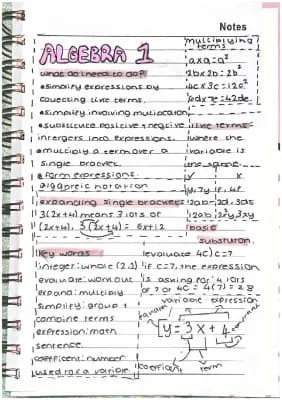 Notes
ALGEBRA 1
what do i need to do?
•simplify expressions by
collecting like terms.
•simplify involving multiplication
•substitute positive + negative
intergers into expressions.
•multiply a term over a
single bracket
•form expressions
expanding single brackets
3(2x+4) means 3 lots of
(2x+4). 3(2x+4) = 6x+12
key words
integer: whole (2,1)
evaluate: work out
expand: multiply
simplify: group +
combine terms
expression: math
sentence
coefficent: number
used for a variable
multiplying
terms
axa=a²
4c x 3c = 12c²
like terms
where the
variable is
the same.
✓ x
basic
substituton
evaluate 4c) c=7
if c=7, the expression
is asking for 4 lots
of 7 or 4c = 4(7) = 28
variable expression
y = 3x + 4
coefficent
term